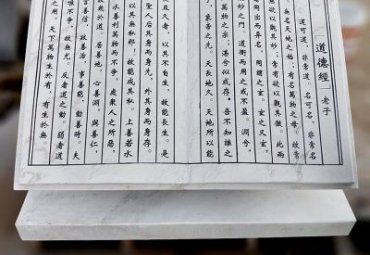 道德經 老子
道可道，非常道，名可名，非常名
無名天地之始，有名萬物之母。故常
無欲以觀其妙，常有欲以觀其徼。此兩
者同出而異名，同謂之玄。玄之又玄，
眾妙之門。道沖而用之或不盈。淵兮，
萬物之宗，湛兮似或存。吾不知誰之
子，象帝之先。天長地久。天地所以能
且久者，以其不自生，故能長生。是
聖人后其身而身先，外其身而身存。
以其無私邪，故能成其私。上善若水
水善利萬物而不爭，處衆人之所惡，
故幾於道。居善地，心善淵，與善仁，
言善信，政善治，事善能，動善時。夫
唯不爭，故無尤。反者道之動，弱者道
之用。天下萬物生於有，有生於無